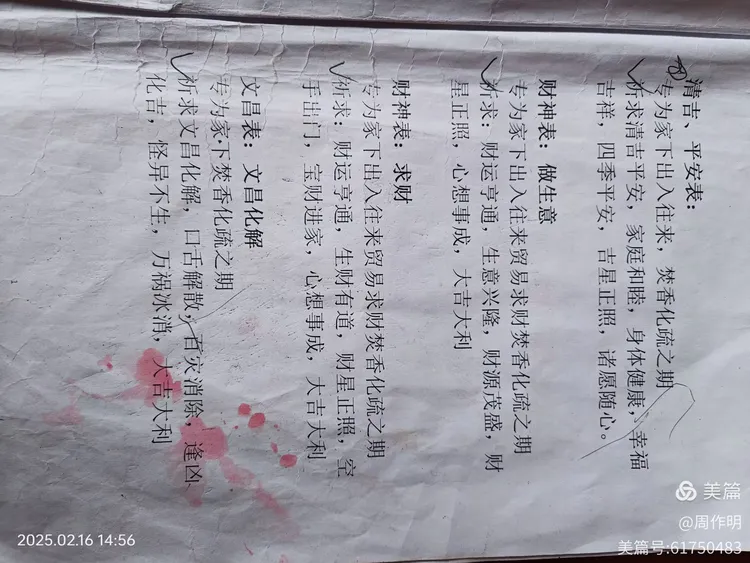 清吉、平安表：
专为家下出入往来，焚香化疏之期
祈求清吉平安，家庭和睦，身体健康，幸福
吉祥，四季平安，吉星正照，诸愿随心。
财神表：做生意
专为家下出入往来贸易求财焚香化疏之期
祈求：财运亨通，生意兴隆，财源茂盛，财
星正照，心想事成，大吉大利
财神表：求财
专为家下出入往来贸易求财焚香化疏之期
祈求：财运亨通，生财有道，财星正照，空
手出门，宝财进家，心想事成，大吉大利
文昌表：文昌化解
专为家下焚香化疏之期
祈求文昌化解，口舌解散，百灾消除，逢凶
化吉，怪异不生，万祸冰消，大吉大利
2025.02.16 14:56
美篇
@周作明
美篇号:61750483